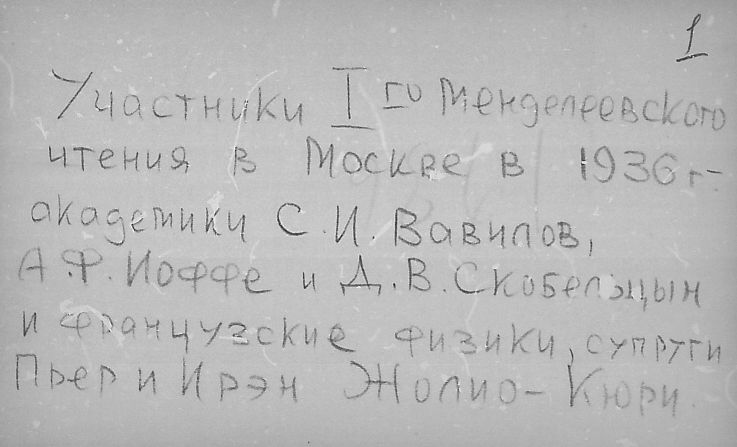 1
Участники Iго Менделеевского
чтения в Москве в 1936 г-
академики С.И. Вавилов,
А.Ф. Иоффе и Д.В. Скобельцын
и французские физики, супруги
Пьер и Ирэн Жолио-Кюри.